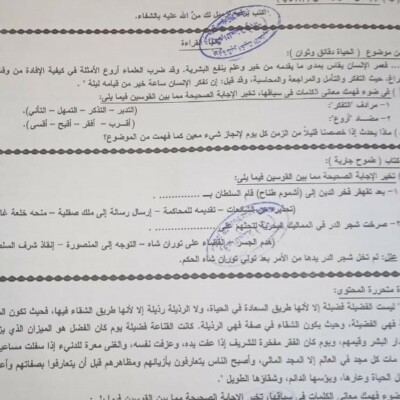 اكتب برقية لزميل لك من الله عليه بالشفاء.
القراءة
من موضوع ( الحياة دقائق وثوان ):
.... فعمر الإنسان يقاس بمدى ما يقدمه من خير وعلم ينفع البشرية. وقد ضرب العلماء أروع الأمثلة في كيفية الإفادة من وقت
حيث التفكر والتأمل والمراجعة والمحاسبة، وقد قيل: إن تفكر الإنسان ساعة خير من قيامه ليلة " .
) في ضوء فهمك معاني الكلمات في سياقها، تخير الإجابة الصحيحة مما بين القوسين فيما يلي:
١ - مرادف "التفكر": (التدبر – التذكر – التمهل – التأني).
٢ - مضاد "أروع": (أقرب – أفكر – أقبح – أقسى).
) ماذا يحدث إذا خصصنا قليلاً من الزمن كل يوم لإنجاز شيء معين كما فهمت من الموضوع؟
كتاب ( طموح جارية ):
) تخير الإجابة الصحيحة مما بين القوسين فيما يلي:
١- بعد تقهقر فخر الدين إلى (أشموم طناح) قام السلطان بـ ...........
– تقديمه للمحاكمة – إرسال رسالة إلى ملك صقلية – منحه خلعة
٢- صرخت شجر الدر في المماليك البحرية لتحثهم على ...........
توران شاه – التوجه إلى المنصورة – إنقاذ شرف
علل: لم تخل شجر الدر يدها من الأمر بعد تولي توران شاه الحكم.
متحررة المحتوى:
" ليست الفضيلة فضيلة إلا لأنها طريق السعادة في الحياة، ولا الرذيلة رذيلة إلا لأنها طريق الشقاء فيها، فحيث تكون
فهي الفضيلة، وحيث يكون الشقاء في صفة فهي الرذيلة. كانت القناعة فضيلة يوم كان الفضل هو الميزان الذي
البشر وقيمهم، ويوم كان الفقر مفخرة للشريف إذا عفت يده، وعزفت نفسه، والغنى معرة للدنيء إذا سفلت
مات كل مجد في العالم إلا المجد المالي، وأصبح الناس يتعارفون بأزيائهم ومظاهرهم قبل أن يتعارفوا بصفاتهم
الحياة وعارها، وبؤسها الدائم، وشقاؤها الطويل ".
ضوء فهمك معاني الكلمات في سياقها، تخير الإجابة الصحيحة مما بين القوسين فيما يلي: